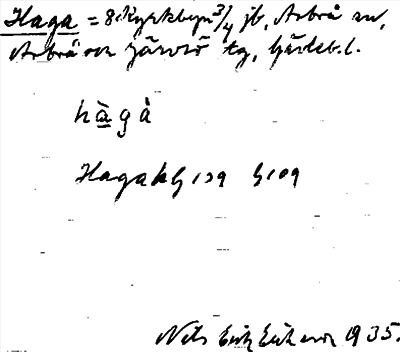 Haga = 8 Kyrkbyn 3/4 jb, Arbrå sn,
Arbrå och Järvsö tg, Gävleb. l.
hàgå
Haga
Nils Erik Eriksson 1935.